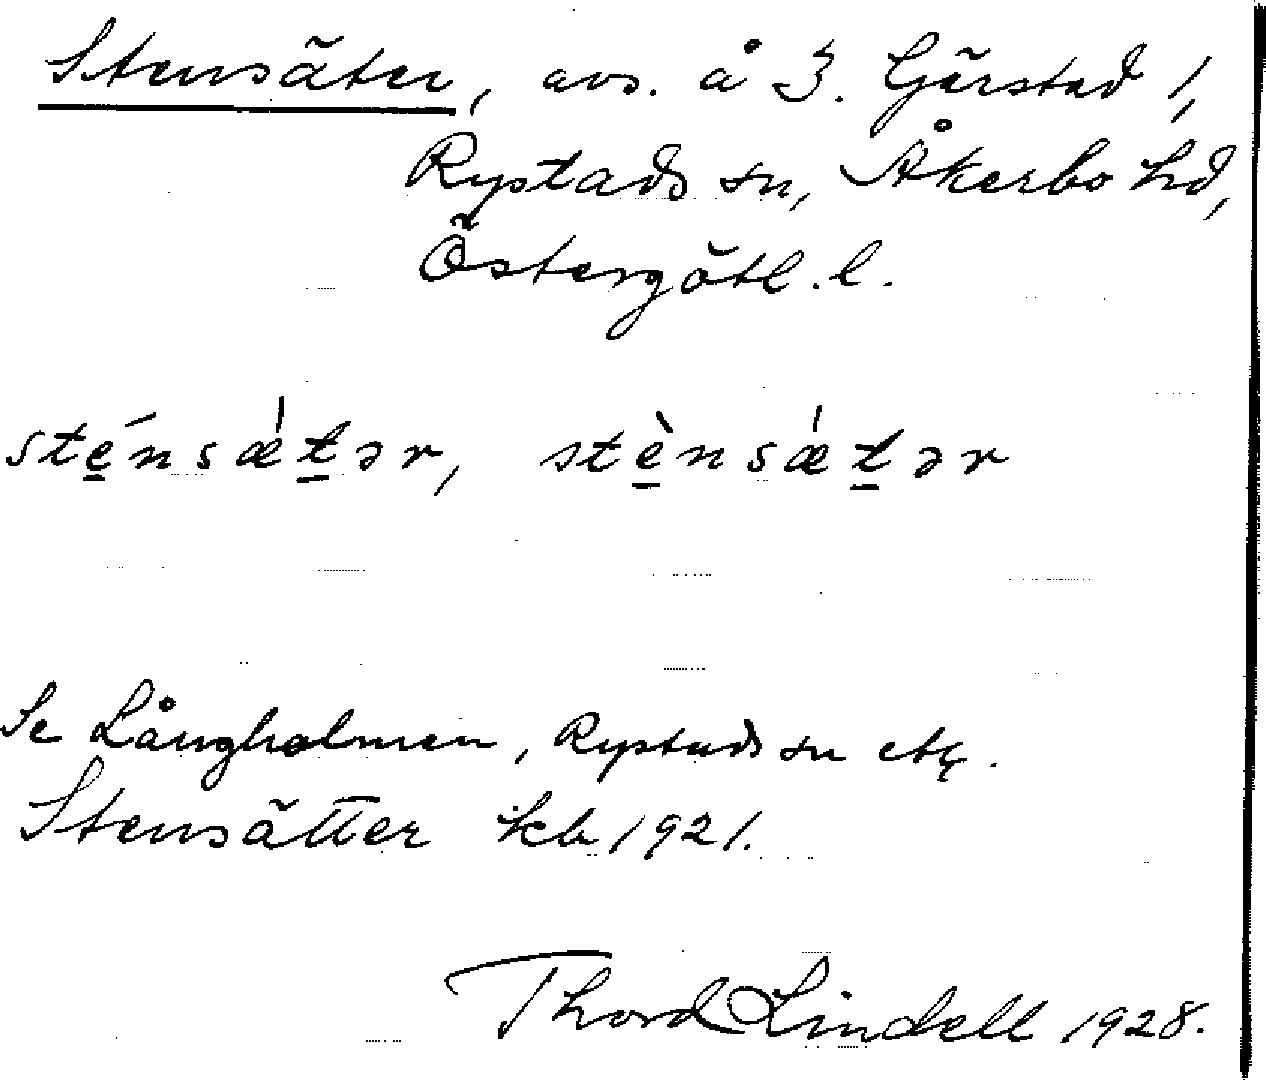 Stensäter, avs. å 3. Gärstad 1,
Rystads sn, Åkerbo hd,
Östergötl. l.
sténsǽtər, stènsǽtər
Se Långholmen, Rystads sn etc.
Stensätter kb 1921.
Thord Lindell 1928.